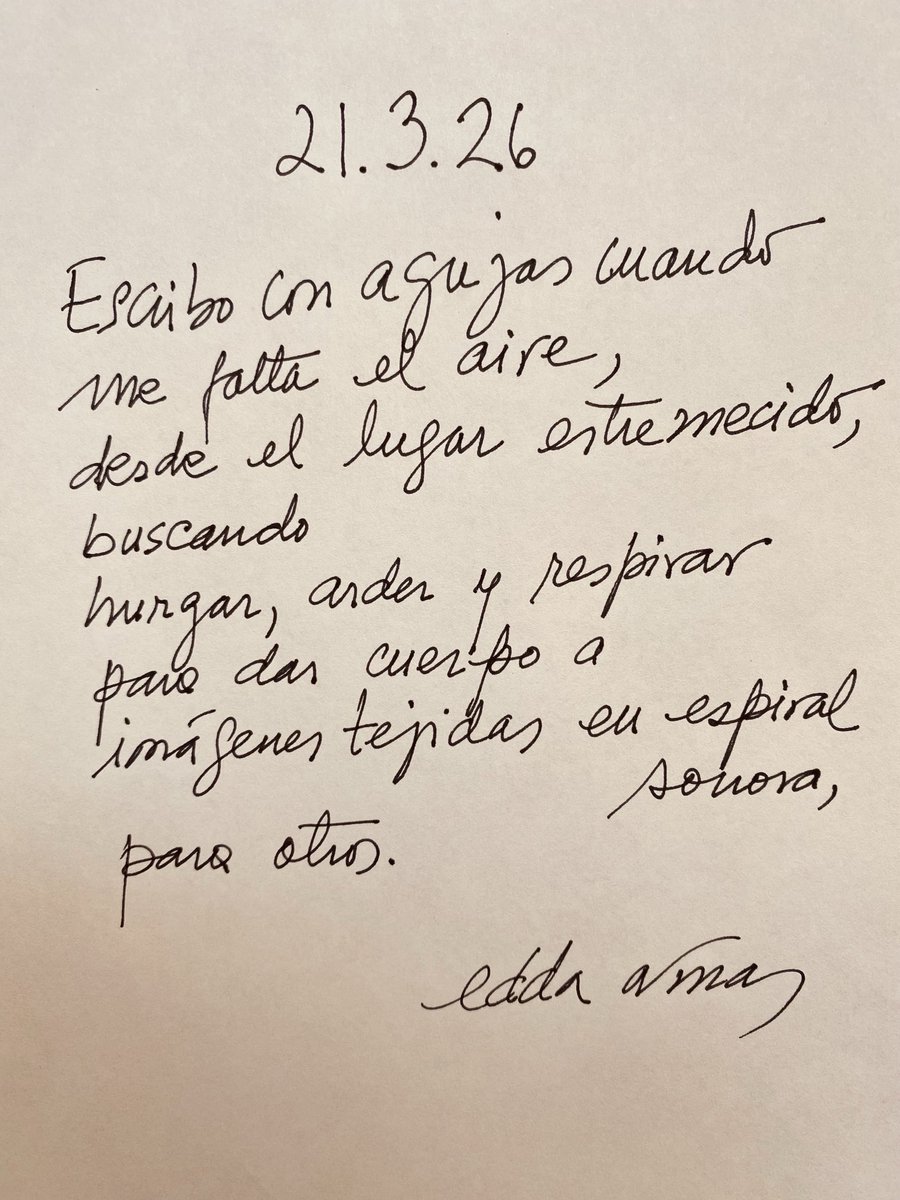 21.3.26
Escribo con agujas cuando
me falta el aire,
desde el lugar estremecido,
buscando
hurgar, arder y respirar
para dar cuerpo a
imágenes tejidas en espiral
sonora,
para otros.
edda armas